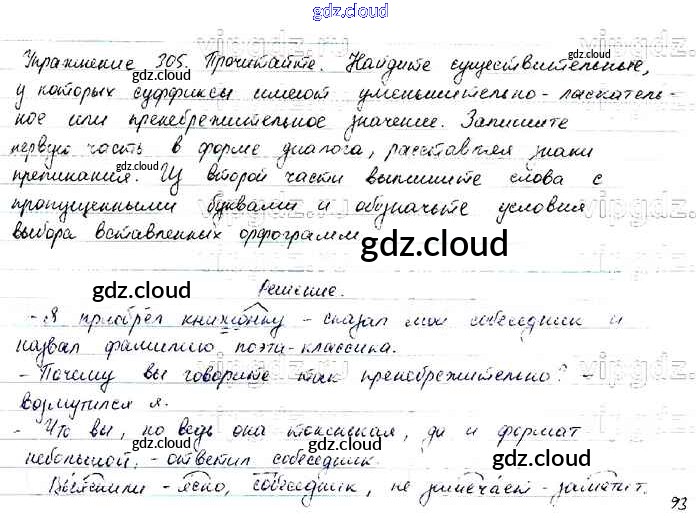 gdz.cloud
Упражнение 305. Прочитайте. Найдите существительные,
gdz.cloud
gdz.cloud
у которых суффиксы имеют уменьшительно-ласкатель-
gdz.cloud
ное или пренебрежительное значение. Запишите
первую часть в форме диалога, расставляя знаки
gdz.cloud
препинания. Из второй части выпишите слова с
пропущенными буквами и обозначьте условия
выбора вставленных орфограмм.
gdz.cloud
gdz.cloud
Решение.
- Я приобрёл книжонку - сказал мой собеседник и
назвал фамилию поэта-классика.
- Почему вы говорите так пренебрежительно? -
возмутился я.
- Что вы, но ведь она тоненькая, да и формат
gdz.cloud
небольшой, - ответил собеседник.
Выяснили - ясно, собеседник, не замечает - заметит.
93
vipgdz.ru
vipgdz
vipgdz